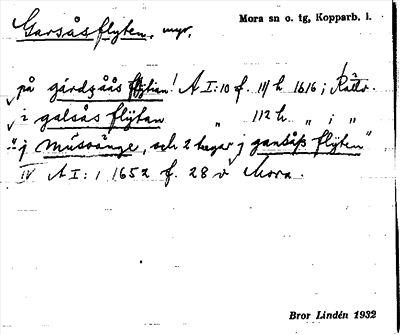 Garsåsflyten, myr.
Mora sn o. tg, Kopparb. l.
på gårdsåås flÿtian! A I:10 f. 111 h 1616; Rättv.
i galsås flÿtan „ 112 h „ ; „
"j müssänge, och 2 hagar j gansåss flÿten"
IV A I:1 1652 f. 28 v Mora.
Bror Lindén 1932